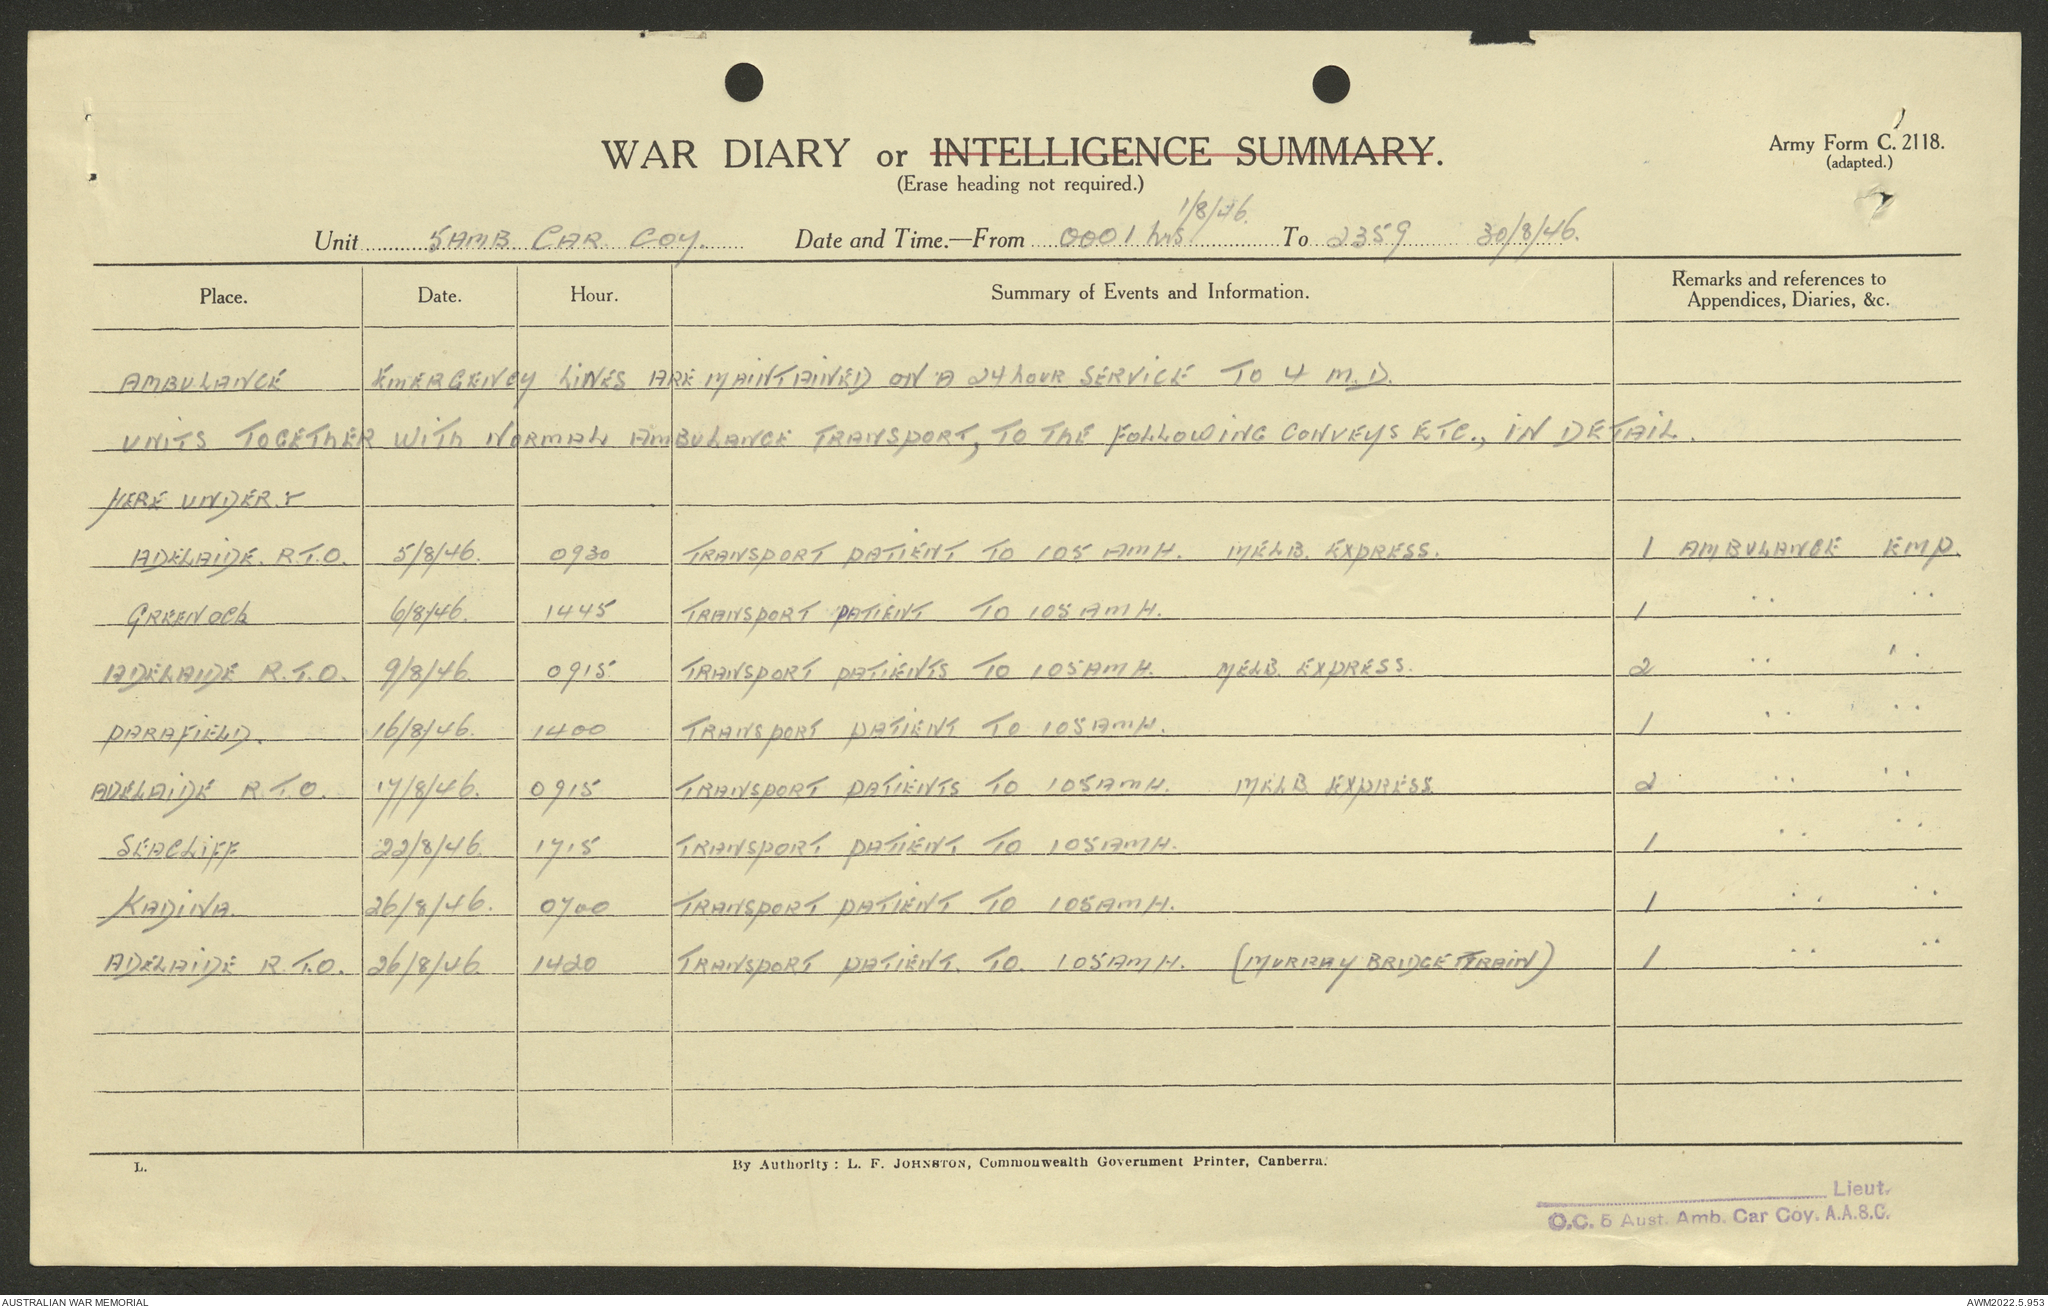 WAR DIARY or INTELLIGENCE SUMMARY.
(Erase heading not required.)
Army Form C. 2118.
(adapted.)
Unit 5 AMB CAR COY. Date and Time.—From 0001 hrs 1/8/46. To 2359 30/8/46.
Place. Date. Hour. Summary of Events and Information. Remarks and references to Appendices, Diaries, &c.
AMBULANCE EMERGENCY LINES ARE MAINTAINED ON A 24 HOUR SERVICE TO 4 M.D.
UNITS TOGETHER WITH NORMAL AMBULANCE TRANSPORT, TO THE FOLLOWING CONVEYS ETC., IN DETAIL.
HERE UNDER :-
ADELAIDE. R.T.O. 5/8/46. 0930 TRANSPORT PATIENT TO 105 AMH. MELB. EXPRESS. 1 AMBULANCE EMP.
GREENOCK 6/8/46. 1445 TRANSPORT PATIENT TO 105 AMH. 1 " "
ADELAIDE R.T.O. 9/8/46. 0915 TRANSPORT PATIENTS TO 105 AMH. MELB. EXPRESS. 2 " "
PARAFIELD. 16/8/46. 1400 TRANSPORT PATIENT TO 105 AMH. 1 " "
ADELAIDE R.T.O. 17/8/46. 0915 TRANSPORT PATIENTS TO 105 AMH. MELB EXPRESS. 2 " "
SEACLIFF 22/8/46. 1715 TRANSPORT PATIENT TO 105 AMH. 1 " "
KADINA. 26/8/46. 0700 TRANSPORT PATIENT TO 105 AMH. 1 " "
ADELAIDE R.T.O. 26/8/46. 1420 TRANSPORT PATIENT. TO. 105 AMH. (MURRAY BRIDGE TRAIN) 1 " "
L. By Authority: L. F. JOHNSTON, Commonwealth Government Printer, Canberra.
Lieut.
O.C. 5 Aust. Amb. Car Coy. A.A.S.C.
AUSTRALIAN WAR MEMORIAL
AWM2022.5.953